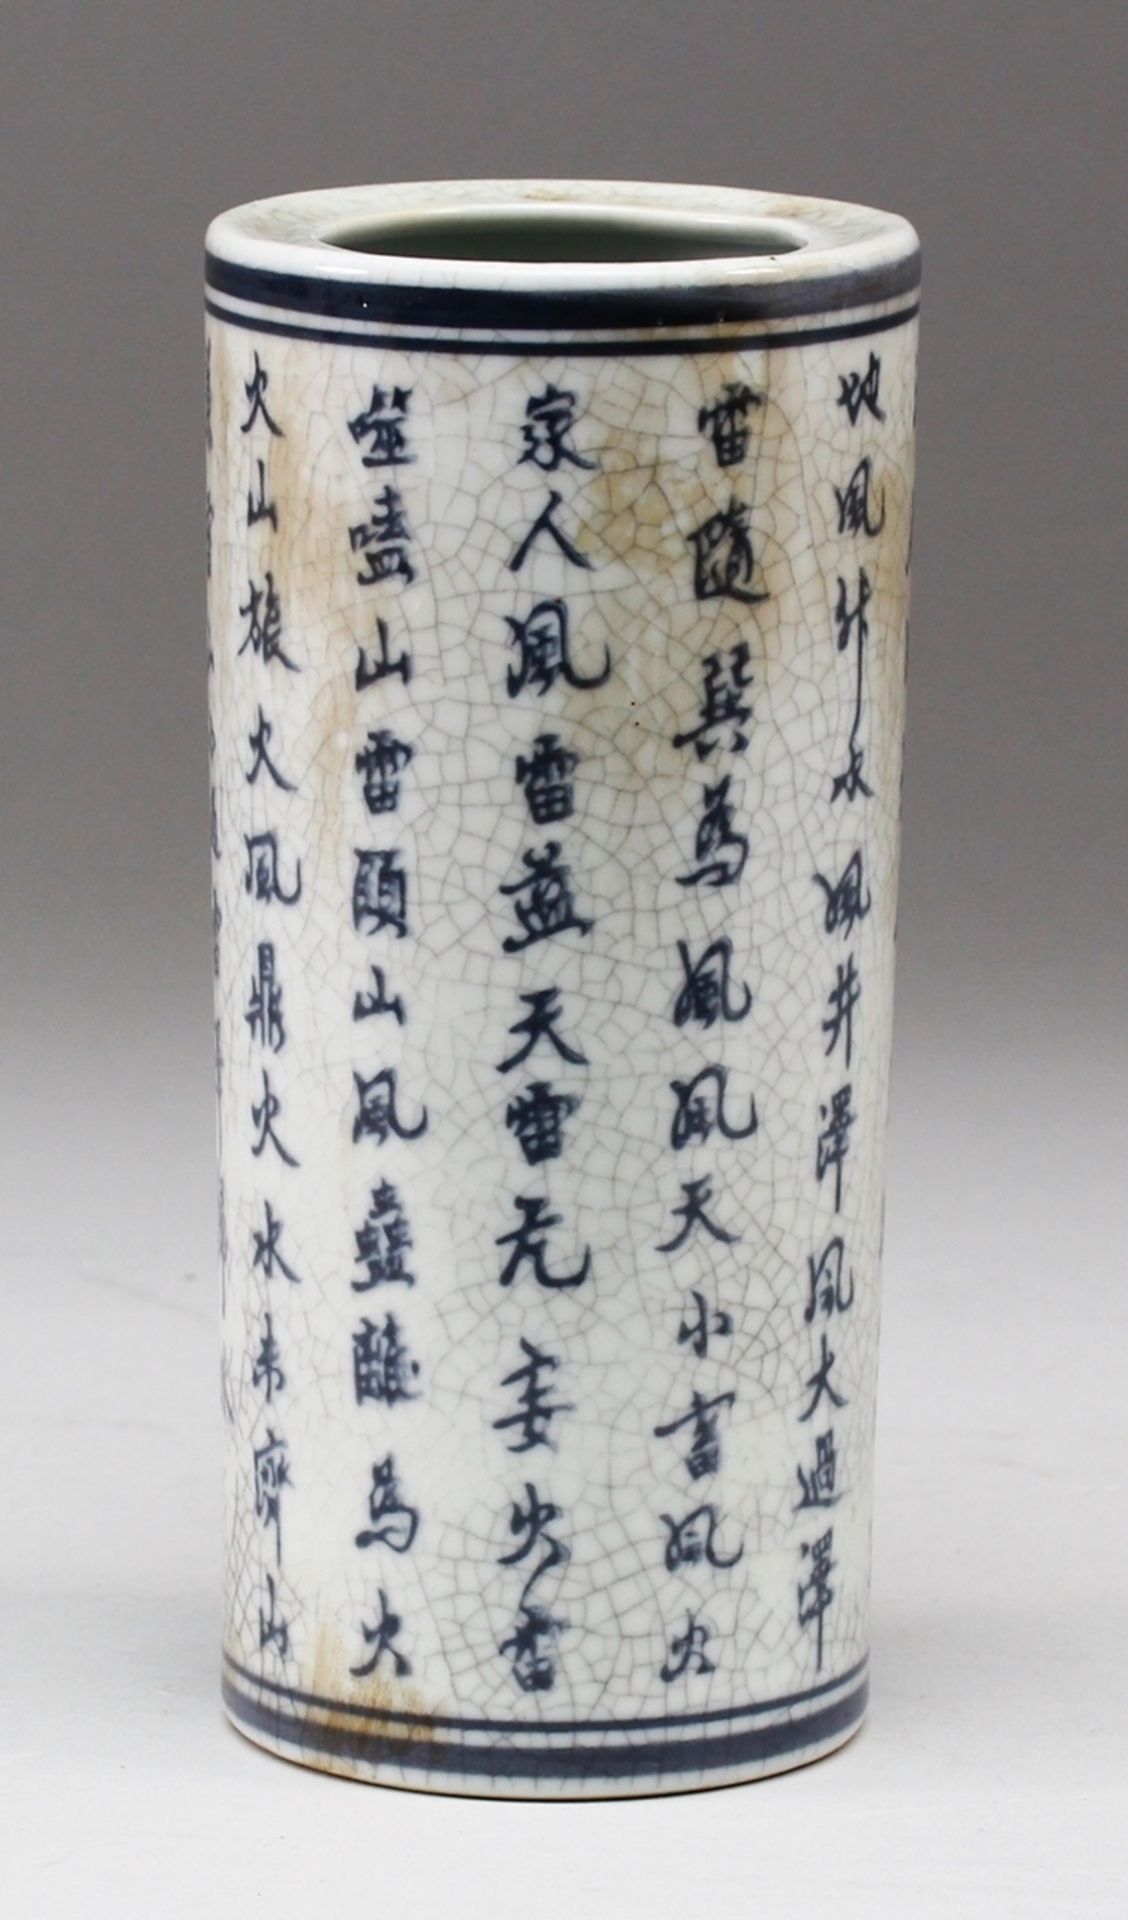 地風升水風井澤風大過澤
雷隨巽為風風天小畜風火
家人風雷益天雷无妄火雷
噬嗑山雷頤山風蠱離為火
火山旅火風鼎火水未濟山